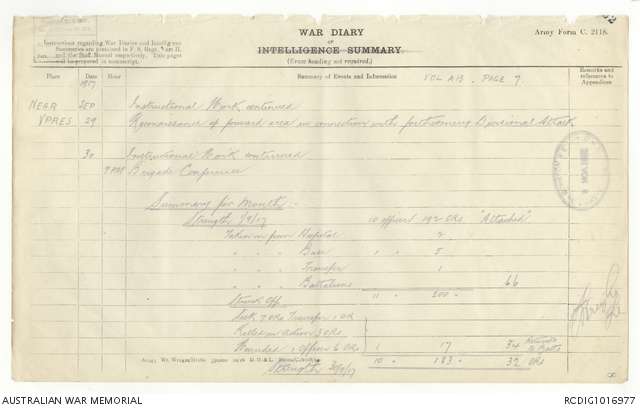 WAR DIARY
or
INTELLIGENCE SUMMARY.
(Erase heading not required.)
Army Form C. 2118.
Instructions regarding War Diaries and Intelligence
Summaries are contained in F. S. Regs., Part II.
and the Staff Manual respectively. Title pages
will be prepared in manuscript.
Place Date Hour Summary of Events and Information VOL PAGE 7. Remarks and references to Appendices
1917
NEAR SEP Instructional Work continued
YPRES 29 Reconnaissance of forward area in connection with forthcoming Divisional Attack
30 Instructional Work continued
7 PM Brigade Conference
Summary for Month :-
Strength 1/9/17 10 officers 192 ORs "Attached"
Taken in from Hospital 2
" " " Base 5
" " " Transfer 1
" " " Battalions 66
11 " 200 "
Struck Off
Sick 7 ORs Transfer 1 OR
Killed in Action 3 ORs
Wounded 1 Officer 6 ORs 1 17 34 Returned to Battns
Strength 30/9/17 10 " 183 " 32 ORs
AUSTRALIAN WAR MEMORIAL
RCDIG1016977